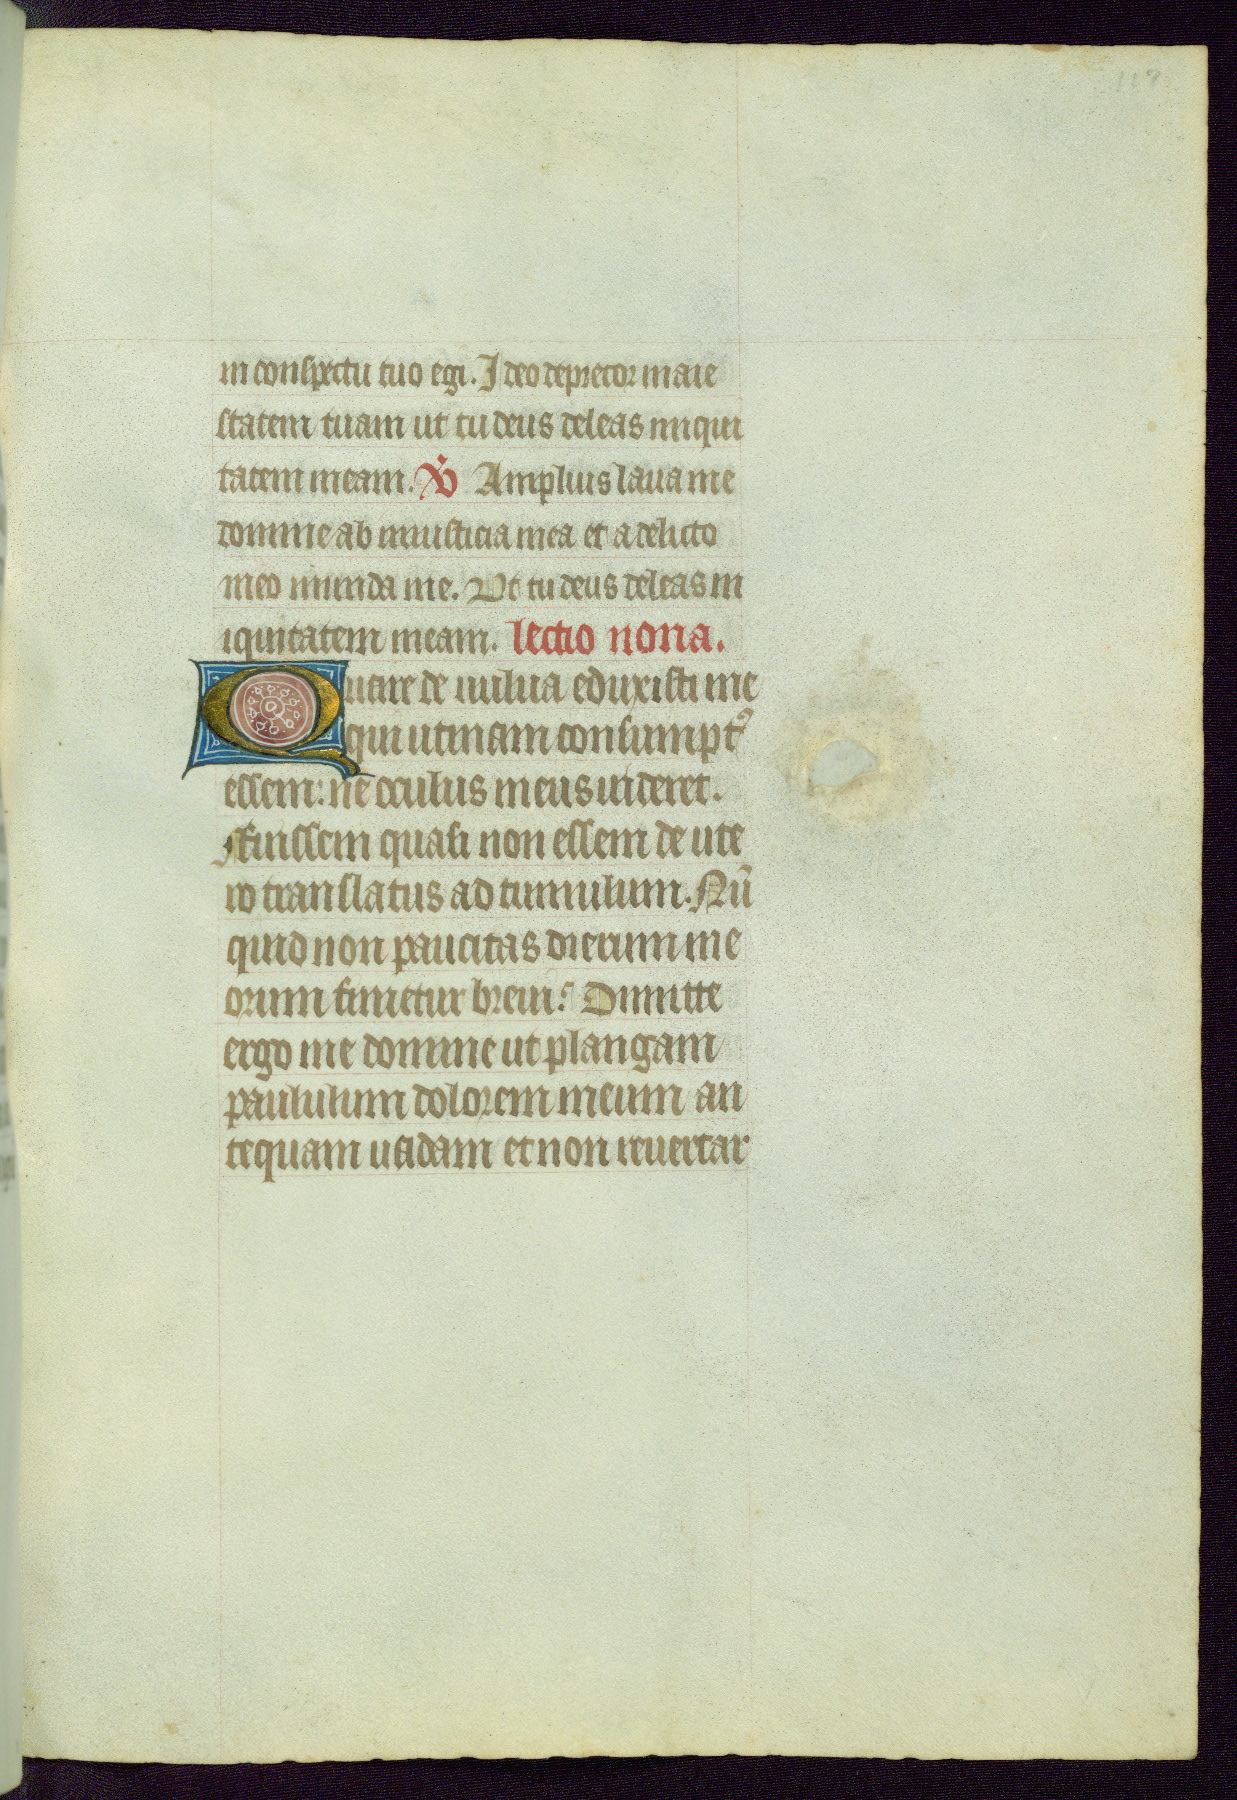 117
in conspectu tuo egi. Ideo deprecor maie
statem tuam ut tu deus deleas iniqui
tatem meam. ℣ Amplius laua me
domine ab iniusticia mea et a delicto
meo munda me. Ut tu deus deleas in
iquitatem meam. lectio nona.
Quare de uulua eduxisti me
qui utinam consumptꝰ
essem: ne oculus meus uideret.
Fuissem quasi non essem de ute
ro translatus ad tumulum. Nū
quid non paucitas dierum me
orum finietur breui? Dimitte
ergo me domine ut plangam
paululum dolorem meum an
tequam uadam et non reuertar